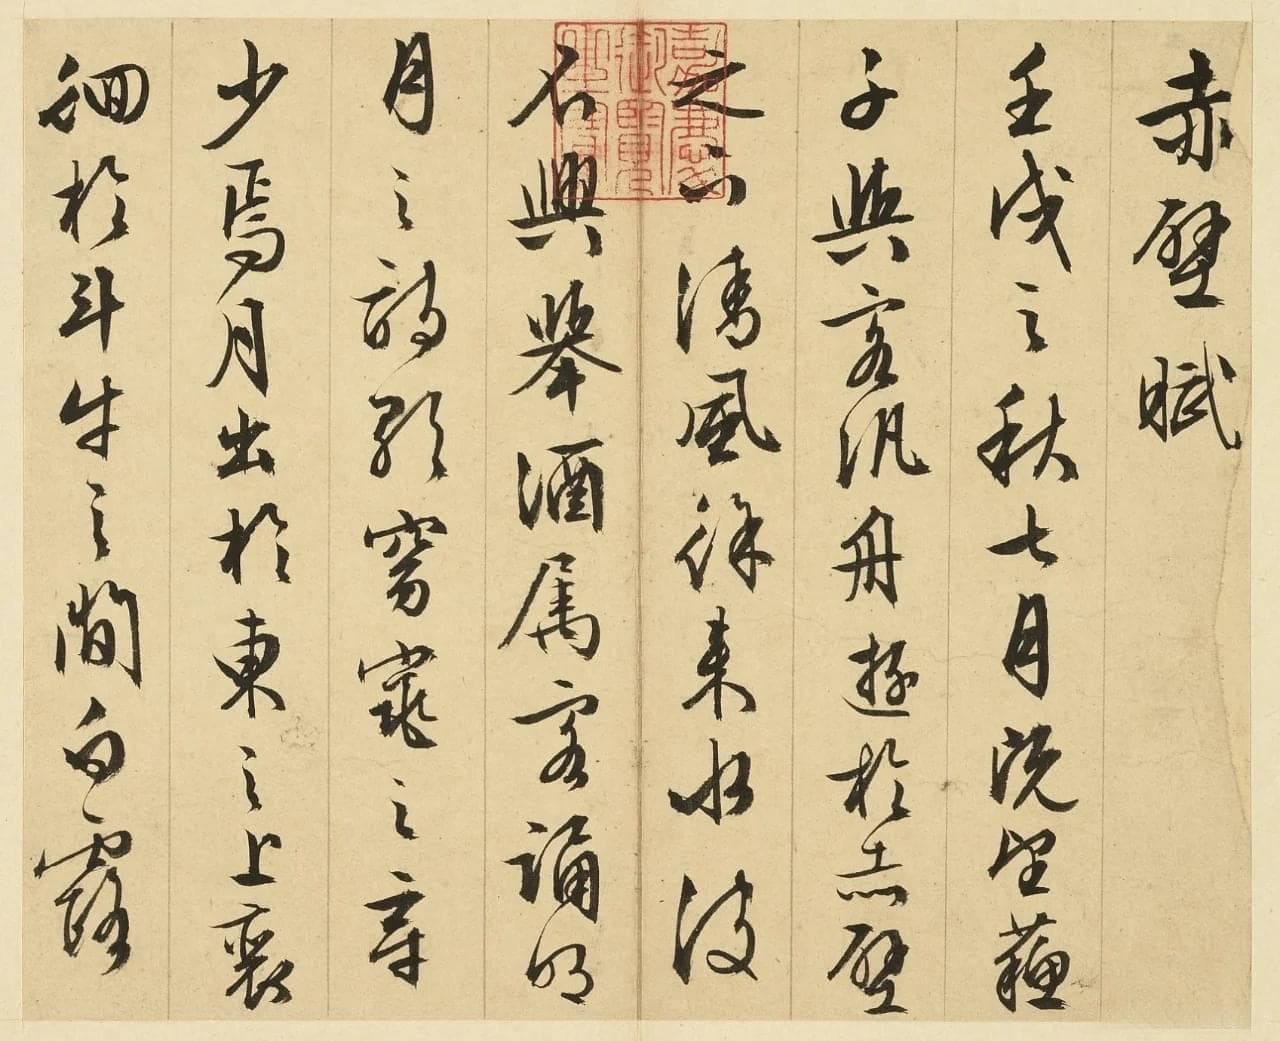 赤壁賦
壬戌之秋七月既望蘇
子與客汎舟遊於赤壁
之下清風徐來水波
不興舉酒属客誦明
月之詩歌窈窕之章
少焉月出於東之上裵
徊於斗牛之間白露
嘉慶御覽之寶